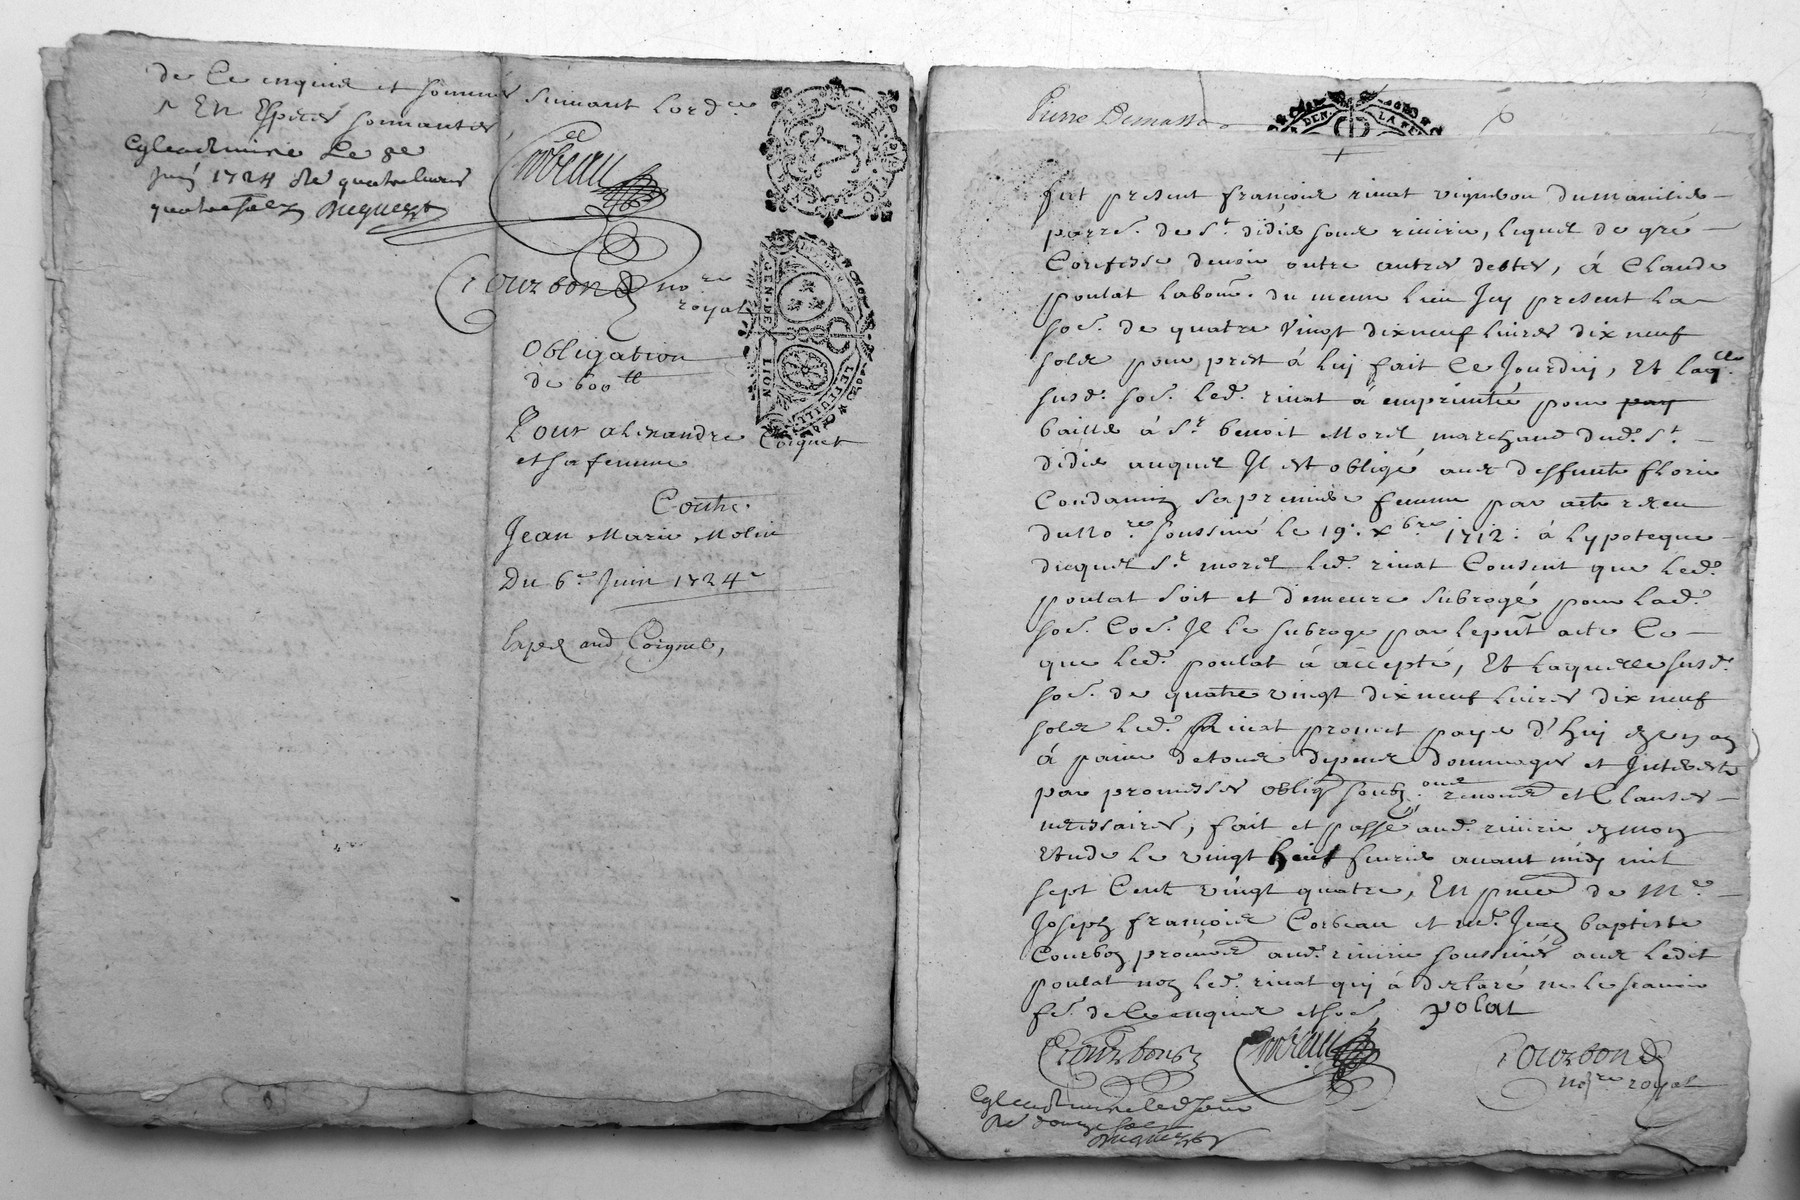 de Ce enquis et sommés suivant lord.ce
En Espices sonnantes
le 8e
juin 1724 Re quatre livres
quatre sols
Corbeau
Courbon no.re
royal
GEN·DE LION
LEFEUILLE
Obligation
de 600 tt
Pour alexandre Coignet
et sa femme
Contre
Jean Marie Molin
Du 6e Juin 1724
Coignet,
Pierre Demasso
DEN· LA FE
fut present françois rivat vigneron du
parr.e de St didier sous riviere, lequel de gré
Confesse devoir outre autres debtes, á Claude
poulat labour. du meme lieu Icy present la
so.e de quatre vingt dix neuf livres dix neuf
solz pour prest á luy fait Ce Jourdhuy, Et laq.lle
susd. so.e led. rivat á emprunté pour pay
bailler á Sr benoit Morel marchand dud. St
didier auquel Il est obligé avec deffunte florie
Condamin sa premiere femme par acte receu
du No.re soussiné le 19: xbre 1712: á lypoteque
dicquel Sr morel led. rivat Consent que led.
poulat soit et demeure subrogé pour lad.
so.e Co.e Il le subroge par lepnt acte Ce
que led. poulat á accepté, Et laquelle susd.
so.e de quatre vingt dix neuf livres dix neuf
solz led. Rivat promet payer d'huy en un an
á paine de tous depens dommages et Interests
par promesses oblig soubz renonc et Clauses
necessaires, fait et passé aud. riviere en mon
Etude le vingt huit fevrier avant midy mil
sept Cent vingt quatre, En pnce de Me
Joseph françois Corbeau et me Jean baptiste
Courbon aud. riviere soussinés avec ledit
poulat non led. rivat qui á declaré ne le scavoir
fe. de Ce enquis et so.é polat
Courbon Corbeau Courbon
no.re royal